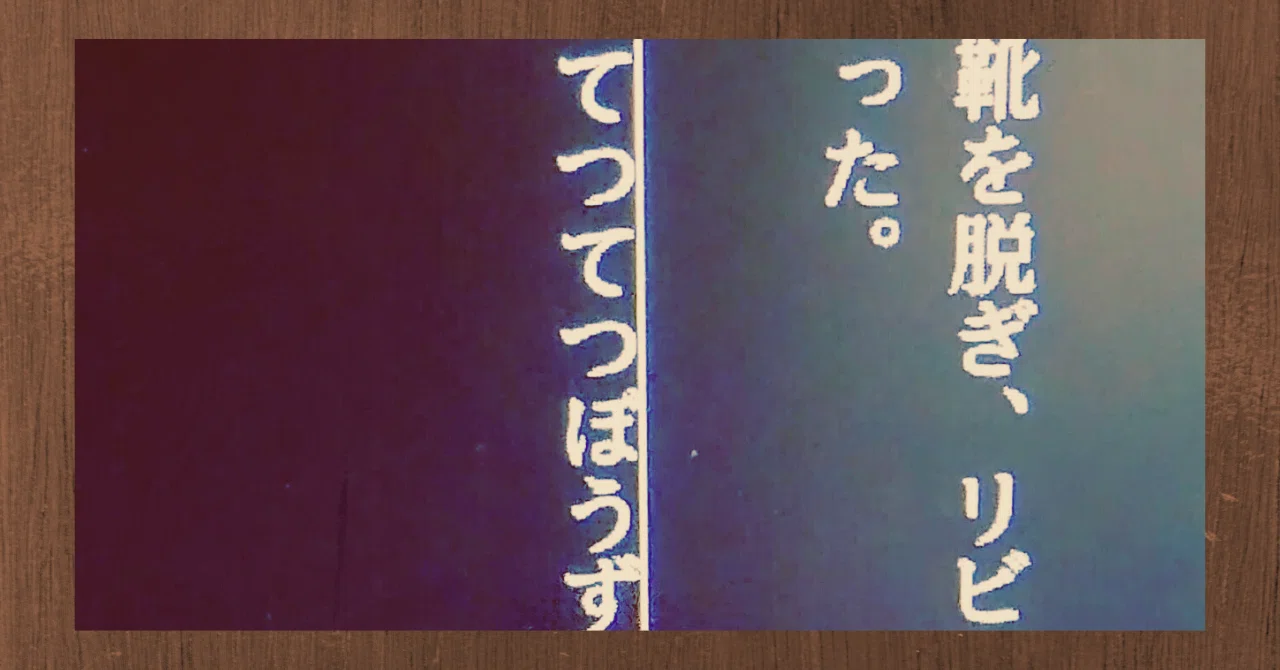 靴を脱ぎ、リビ
った。
てつてつぼうず